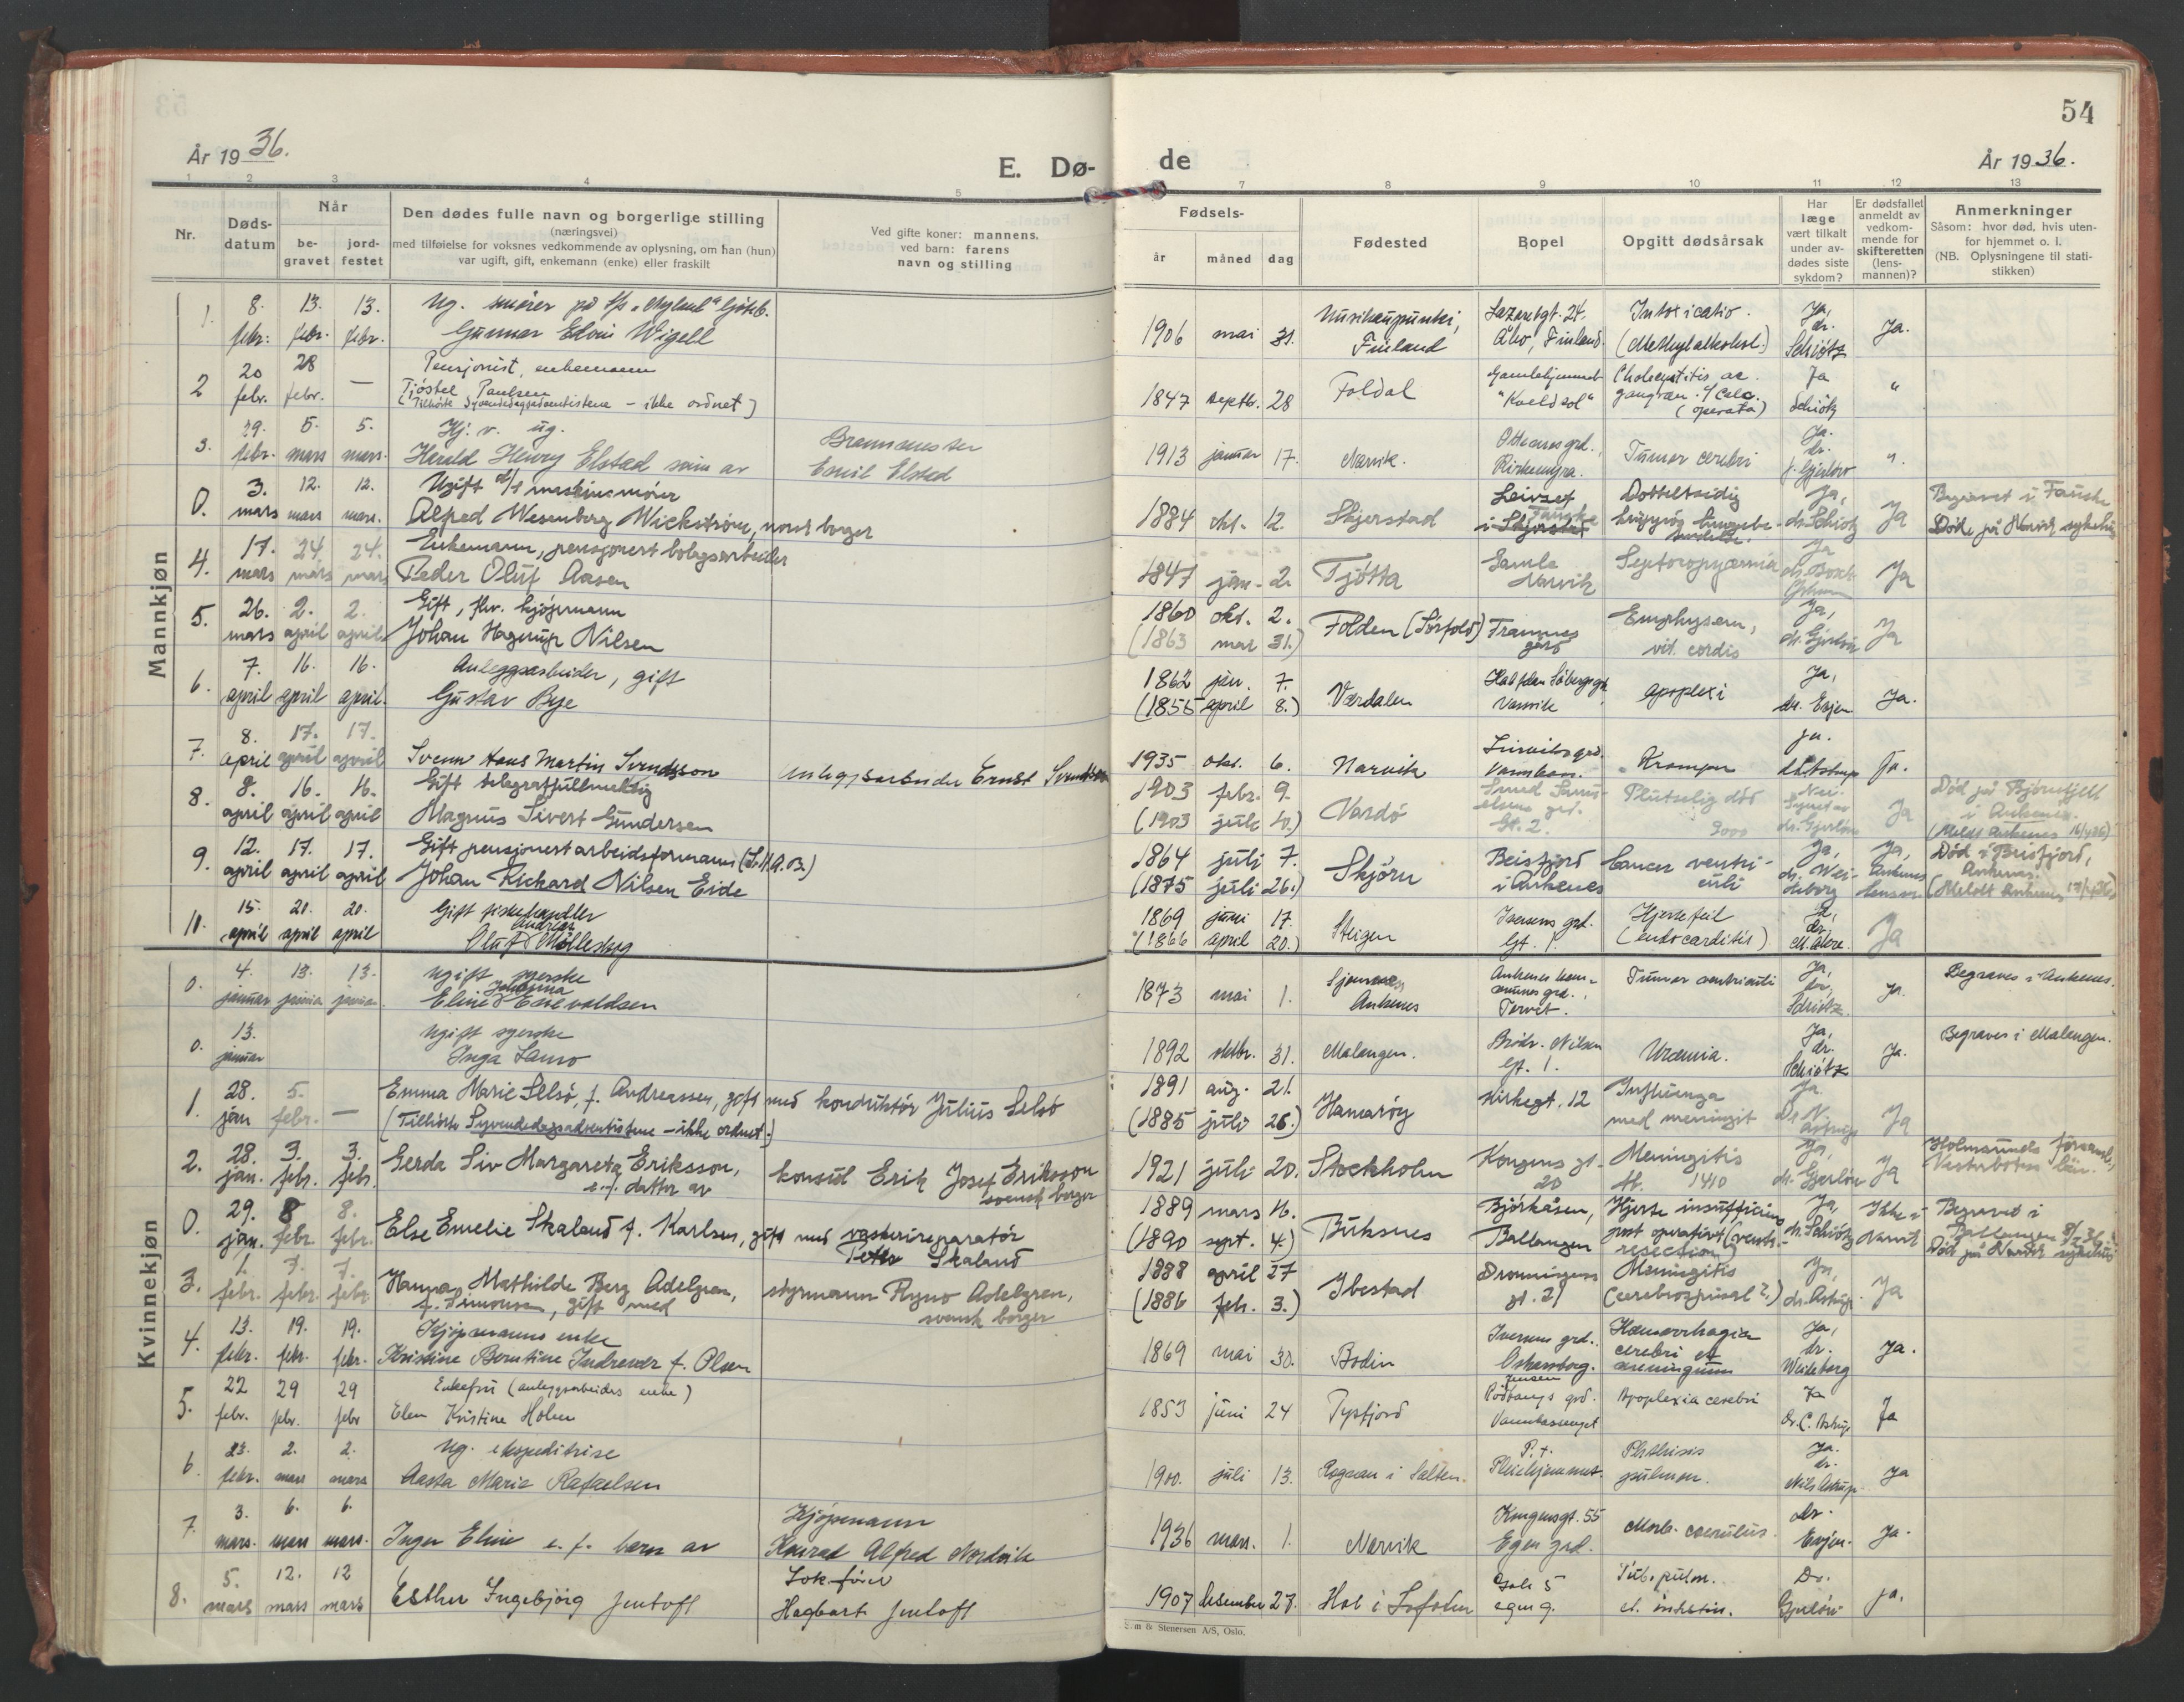 År 1936.
E. Dø-
1 2 3 4 5
Nr.
Døds-
datum
Når
be-
gravet
jord-
festet
Den dødes fulle navn og borgerlige stilling
(næringsvei)
med tilføielse for voksnes vedkommende av oplysning, om han (hun)
var ugift, gift, enkemann (enke) eller fraskilt
Ved gifte koner: mannens,
ved barn: farens
navn og stilling
Mannkjøn
1. 8. febr. 13. febr. 13. febr.
Ug. smører på
Gunnar Edvin Wigell
2 20 febr. 28 febr. —
Pensjonist, enkemann
Tjöstel Paulsen
(Tilhörte Syvendedagsadventistene - ikke ordnet)
3. 29. febr. 5. mars 5. mars.
Hj. v. ug.
Harald Henry Elstad sønn av
Brannmester
Emil Elstad
0. 3. mars 12. mars 12. mars.
Ugift d/s maskinsmører
Alfred Wesenberg Wickström, norsk borger
4. 17. mars 24. mars 24. mars
Enkemann, pensjonert bolagsarbeider
Peder Oluf Aasen
5. 26. mars 2. april 2. april
Gift, fhv. kjøpmann
Johan Hagerup Nilsen
6. 7. april 16. april 16. april.
Anleggsarbeider, gift
Gustav Bye
7. 8. april 17. april 17. april
Svenn Hans Martin Svendsson
Anleggsarbeider Ernst Svendsson
8. 8. april 16. april 16. april
Gift telegraffullmektig
Magnus Sivert Gundersen
9. 12. april 17. april 17. april
Gift pensjonert arbeidsformann
Johan Rickard Nilsen Eide
10. 15. april 20. april 20. april
Gift fiskehandler
Andreas
Oluf Mölleskog
Kvinnekjøn
0. 4. januar 13. januar 13. januar
Ugift syerske
Johanna
Eline Enevoldsen
0. 13. januar
Ugift syerske
Inga Lamo
1. 28. jan 5. febr. —
Emma Marie Selsö, f. Andreassen, gift med konduktör Julius Selsö
(Tilhörte Syvendedagsadventistene - ikke ordnet.)
2. 28. jan. 3. febr. 3. febr.
Gerda Siv Margareta Eriksson,
e.f. datter av
konsul Erik Josef Eriksson
svensk borger
0. 29. jan. 8 febr. 8. febr.
Else Emelie Skaland f. Karlsen, gift med
Petter Skaland
3. 1. febr. 7. febr. 7. febr.
Hanna Mathilde Berg Adelgren,
f. Simonsen, gift med
styrmann Ryno Adelgren,
svensk borger
4. 13. febr. 19. febr. 19. febr.
Kjøpmanns enke
Kristine Berntine Indrevær f. Olsen
5. 22 febr. 29 febr. 29 febr
Enkefru (anleggsarbeiders enke)
Elen Kristine Holm
6 23. febr. 2. mars 2. mars
Ug. ekspeditrise
Aasta Marie Rafaelsen
7. 3. mars. 6. mars 6. mars.
Inger Eline e.f. barn av
Kjøpmann
Konrad Alfred Nordvik
8. 5. mars 12. mars 12 mars
Esther Ingebjörg Jentoft
Lok.fører
Hagbart Jentoft
de
54
År 1936.
7 8 9 10 11 12 13
Fødsels-
år måned dag
Fødested
Bopel
Opgitt dødsårsak
Har
læge
vært tilkalt
under av-
dødes siste
sykdom?
Er dødsfallet
anmeldt av
vedkom-
mende for
skifteretten
(lens-
mannen)?
Anmerkninger
Såsom: hvor død, hvis uten-
for hjemmet o. l.
(NB. Oplysningene til stati-
stikken)
1906 mai 31. Finland
Lazaretgt. 24. Åbo, Finland.
Intoxicatio. (Methylalkohol.)
Ja, dr. Schiötz
Ja.
1847 septbr. 28 Foldal
Gamlehjemmet "Kveldsol"
Cholecystitis ac. gangræn. (operata)
Ja Schiötz
"
1913 januar 17. Narvik.
Tumor cerebri
Ja. dr.
".
1884 okt. 12. Skjerstad
Leivset, Fauske
Dobbeltsidig
Ja, dr. Schiötz
Ja
Begravet i Fauske
Døde på Narvik sykehus
1847 jan. 2. Tjötta
Gamle Narvik
Septicopyæmia
Ja
Ja
1860 okt. 2.
(1863 mar 31.)
Folden (Sörfold)
Framnes gård
Emphysem, vit. cordis
Ja, dr. Gjerlöw
Ja
1862 jan. 7.
(1855 april 8.)
Værdalen
Narvik
Apoplexi
Ja, dr. Evjen
Ja.
1935 okt. 6. Narvik
Kramper
ja.
Ja.
1903 febr. 9.
(1903 juli 10.)
Vardö
Plutselig död
Nei.
dr. Gjerlöw
Ja
Död på Björnfjell
i Ankenes.
1864 juli 7.
(1875 juli 26.)
Skjörn
Beisfjord i Ankenes
Cancer ventriculi
Ja,
Ja, Ankenes
Död i Beisfjord,
Ankenes.
1869 juni 17.
(1866 april 20.)
Steigen
Iversens grd. Gt. 1.
Hjertefeil (endocarditis)
Ja
1873 mai 1. Ankenes
Tumor ventriculi
Ja, dr. Schiötz.
ja.
Begraves i Ankenes.
1892 oktbr. 31. Malangen.
Brödr. Nilsen Gt. 1.
Uræmia.
Ja, dr. Schiötz
Ja.
Begraves i Malangen.
1891 aug. 21.
(1885 juli 26.)
Hamaröy
Kirkegt. 12
Influenza med meningit
Ja. Dr N. Astrup
Ja
1921 juli 20. Stockholm
Kongens gt. 20
Meningitis
Ja, dr. Gjerlöw
Ja
Holmsunds församl.,
Västerbotens län.
1889 mars 16.
(1890 sept. 4.)
Buksnes
Björkåsen, Ballangen
Hjerte insufficiens post operativt (ventr.-resection)
Ja, dr. Schiötz
Ikke i Narvik
Begravet i
Ballangen 8/2 36.
Död på Narvik sykehus
1888 april 27
(1886 feb. 3.)
Ibestad
Dronningens gt. 21
Meningitis (cerebrospinal?)
Ja, dr. Astrup.
Ja
1869 mai 30. Bodin
Iversens grd. Oskarsborg.
Hæmorrhagia cerebri et meningum
Ja, dr. Weideborg
Ja.
1853 juni 24 Tysfjord
Apoplexia cerebri
Ja Dr. C. Astrup
Ja
1900. juli 13. Rognan i Salten.
P.t. Pleiehjemmet.
Phthisis pulmon.
Ja. dr. Nils Astrup.
Ja
1936 mars. 1. Narvik
Kongensgt. 55 Egen grd.
Morb. coeruleus.
Dr. Evjen.
Ja.
1907 desember 27. Hol i Lofoten
egen g.
Tub. pulm. et. intestin.
Dr. Gjerlöw
ja.
Sem & Stenersen A/S, Oslo.